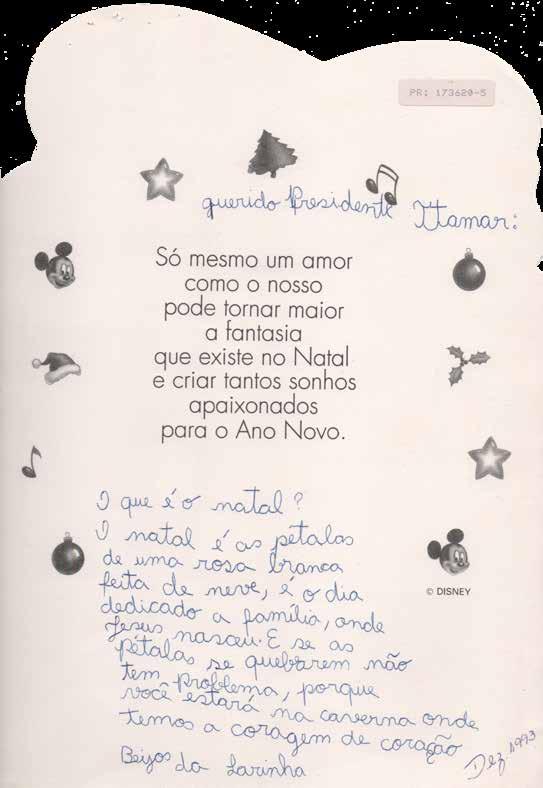 PR: 173620-5
querido Presidente Itamar:
Só mesmo um amor
como o nosso
pode tornar maior
a fantasia
que existe no Natal
e criar tantos sonhos
apaixonados
para o Ano Novo.
O que é o natal?
O natal é as pétalas
de uma rosa branca
feita de neve, é o dia
dedicado a família, onde
Jesus nasceu. E se as
Pétalas se quebarem não
tem problema, porque
você estará na caverna onde
temos a coragem de coração
© DISNEY
Beijos da Larinha
Dez. 1993